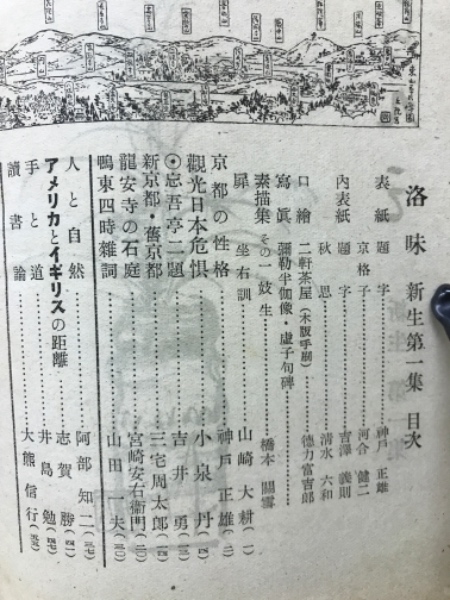 洛味 新生第一集 目次
表紙 題字……………神戸正雄
京格子……………河合健二
内表紙 題字……………吉澤義則
秋思……………清水六和
口繪 二軒茶屋(木版手刷)……………德力富吉郎
寫眞 彌勒半伽像・虛子句碑
素描集 その一 妓生……………橋本關雪
扉 坐右訓……………山崎大耕(一)
京都の性格……………神戸正雄(二)
觀光日本危惧……………小泉丹(四)
◉忘吾亭二題……………吉井勇(三)
新京都・舊京都……………三宅周太郎(一四)
龍安寺の石庭……………宮崎安右衞門(二〇)
鴨東四時雜詞……………山田一夫(三〇)
人と自然……………阿部知二(三七)
アメリカとイギリスの距離……………志賀勝(四一)
手と道……………井島勉(四七)
讀書論……………大熊信行(五五)